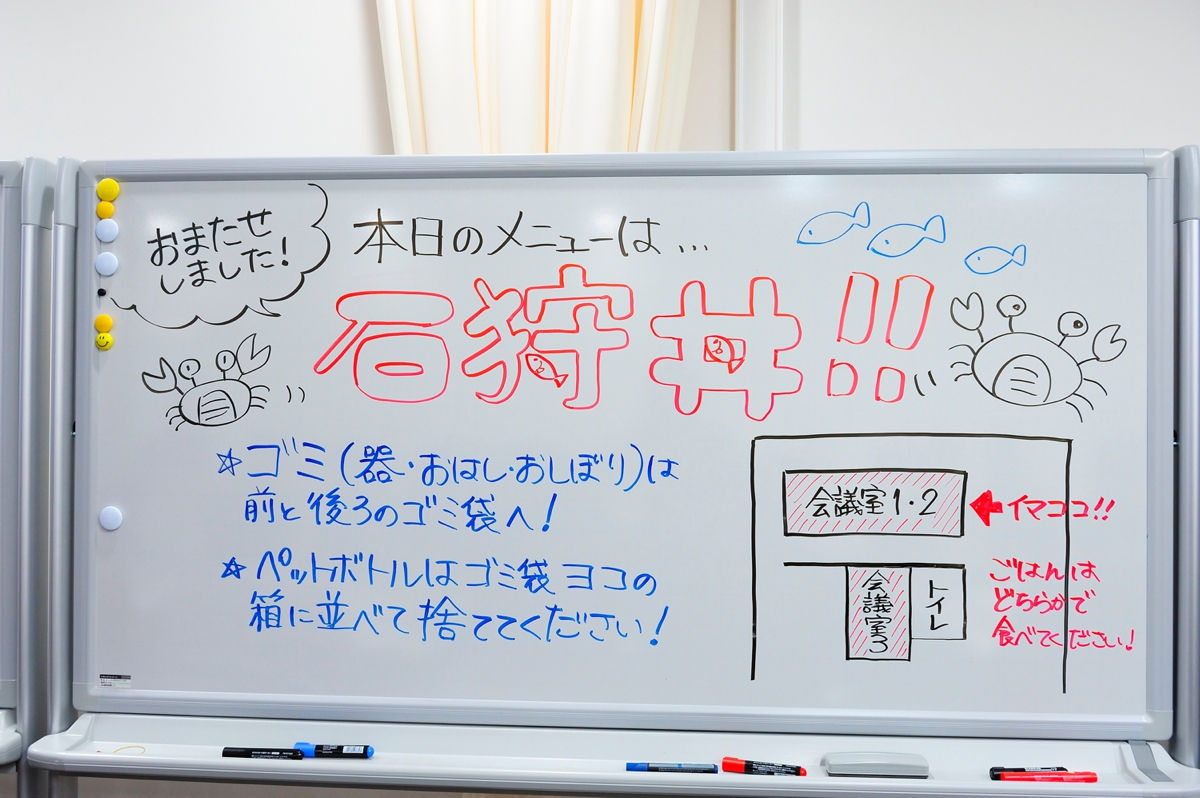 おまたせ
しました!
本日のメニューは...
石狩丼!!
☆ゴミ(器・おはし・おしぼり)は
前と後ろのゴミ袋へ!
☆ペットボトルはゴミ袋ヨコの
箱に並べて捨ててください!
会議室1・2
←イマココ!!
会議室3
トイレ
ごはんは
どちらかで
食べてください!